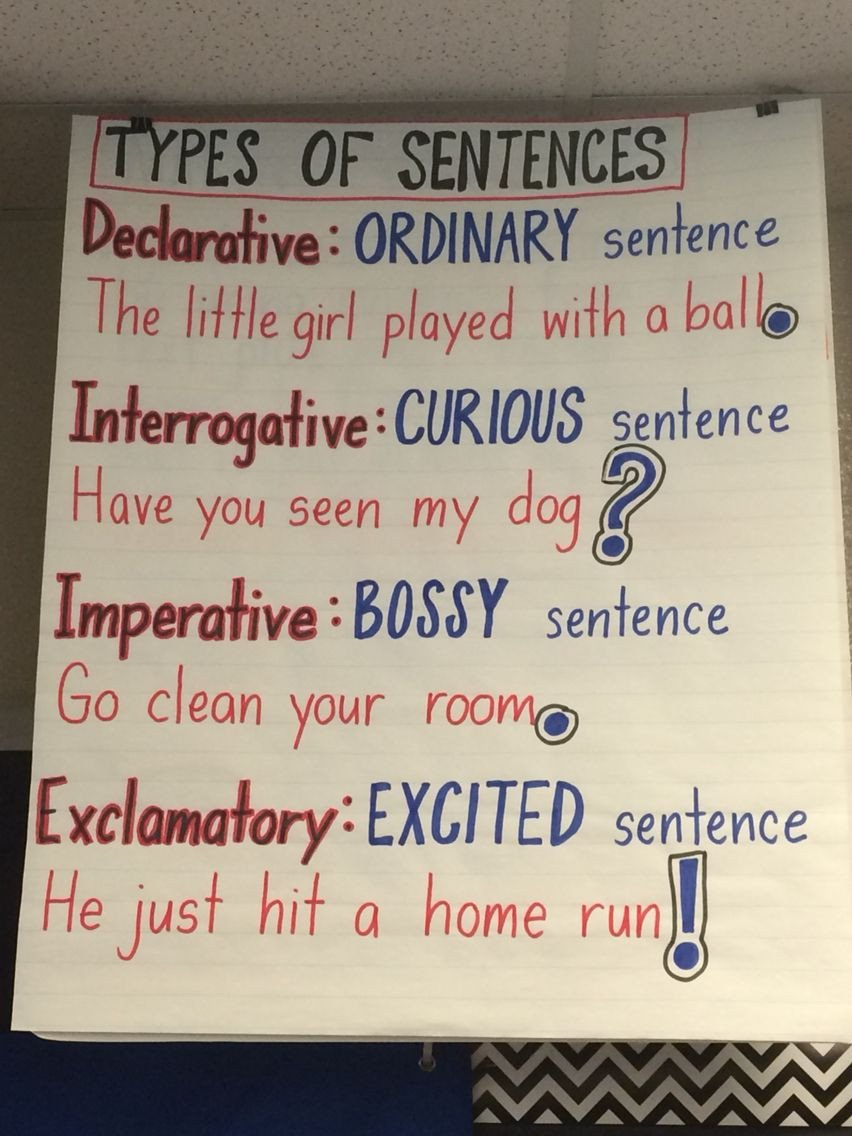 TYPES OF SENTENCES
Declarative: ORDINARY sentence
The little girl played with a ball.
Interrogative: CURIOUS sentence
Have you seen my dog?
Imperative: BOSSY sentence
Go clean your room.
Exclamatory: EXCITED sentence
He just hit a home run!